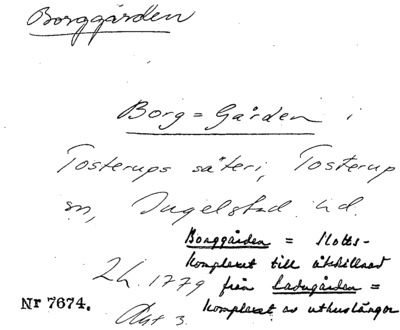 Borggården
Borg=Gården i
Tosterups säteri, Tosterup
sn, Ingelstad hd.
Borggården = slotts-
komplexet till åtskillnad
LH. 1779 från Ladugården =
Nr 7674. Akt 3. komplexet av uthuslängor